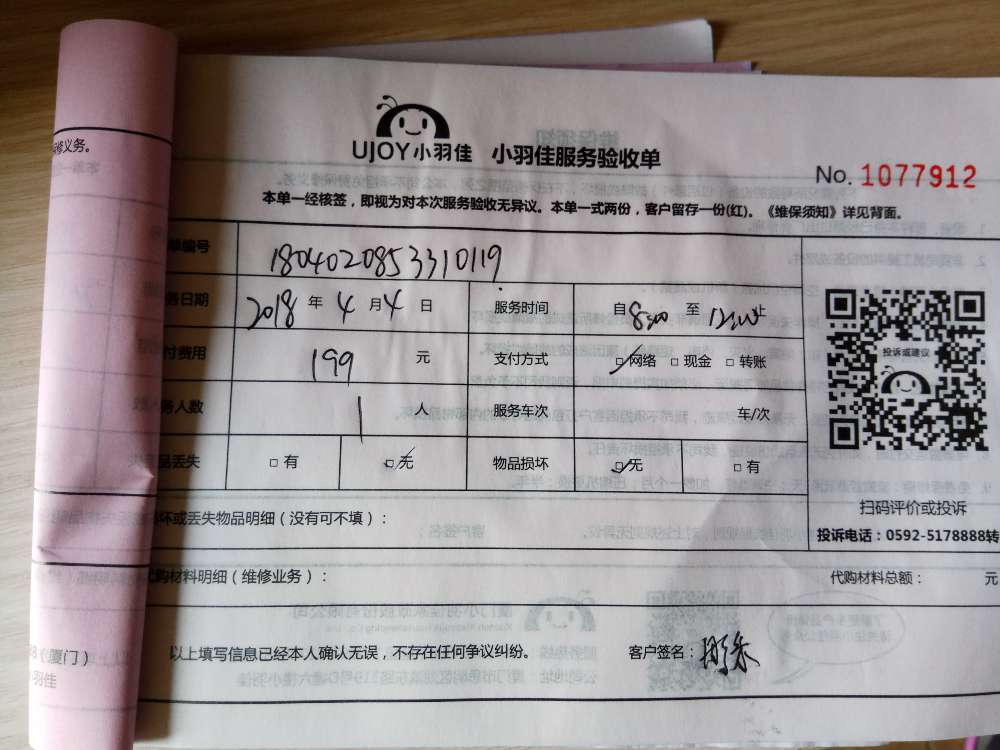 修义务。
UJOY小羽佳 小羽佳服务验收单
No. 1077912
本单一经核签，即视为对本次服务验收无异议。本单一式两份，客户留存一份(红)。《维保须知》详见背面。
单编号 1804020853310119
务日期 2018 年 4 月 4 日 服务时间 自 8:00 至 12:00 止
付费用 199 元 支付方式 □网络 □现金 □转账
务人数 1 人 服务车次 车/次
品丢失 □有 □无 物品损坏 □无 □有
投诉或建议
扫码评价或投诉
投诉电话：0592-5178888转
坏或丢失物品明细（没有可不填）：
代购材料明细（维修业务）： 代购材料总额： 元
以上填写信息已经本人确认无误，不存在任何争议纠纷。 客户签名：
（厦门）
羽佳